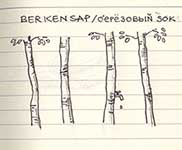 BERKENSAP/берёзовый зок